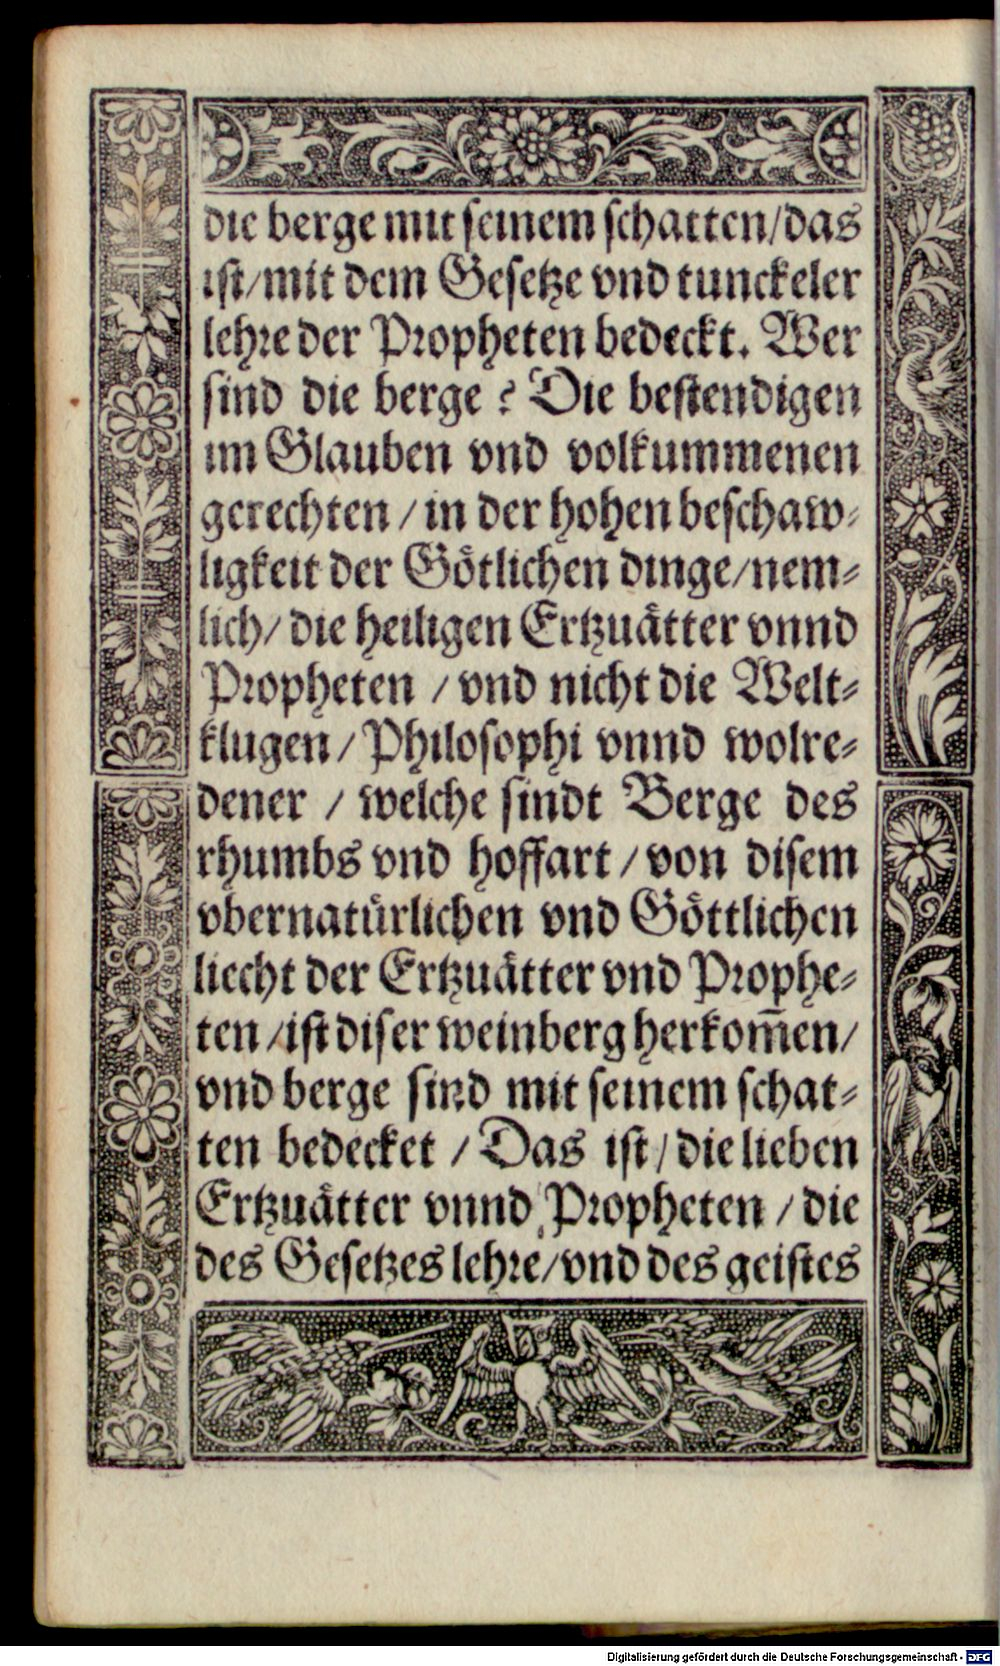 die berge mit seinem schatten/das
ist/mit dem Gesetze vnd tunckeler
lehre der Propheten bedeckt. Wer
sind die berge? Die bestendigen
im Glauben vnd volkummenen
gerechten / in der hohen beschaw⸗
ligkeit der Götlichen dinge/nem⸗
lich/ die heiligen Ertzuätter vnnd
Propheten / vnd nicht die Welt⸗
klugen/ Philosophi vnnd wolre⸗
dener / welche sindt Berge des
rhumbs vnd hoffart / von disem
vbernatürlichen vnd Göttlichen
liecht der Ertzuätter vnd Prophe⸗
ten /ist diser weinberg herkom̄en/
vnd berge sind mit seinem schat⸗
ten bedecket / Das ist/ die lieben
Ertzuätter vnnd Propheten / die
des Gesetzes lehre/vnd des geistes
Digitalisierung gefördert durch die Deutsche Forschungsgemeinschaft - DFG